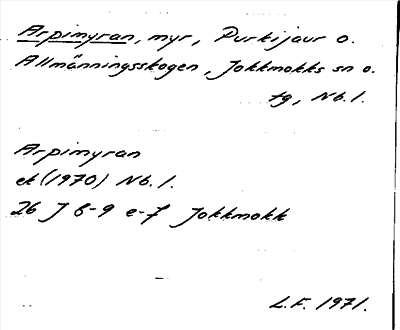 Arpimyran, myr, Purkijaur o.
Allmänningsskogen, Jokkmokks sn o.
tg, Nb.l.
Arpimyran
ek (1970) Nb.l.
26 J 8-9 e-f Jokkmokk
L.F. 1971.